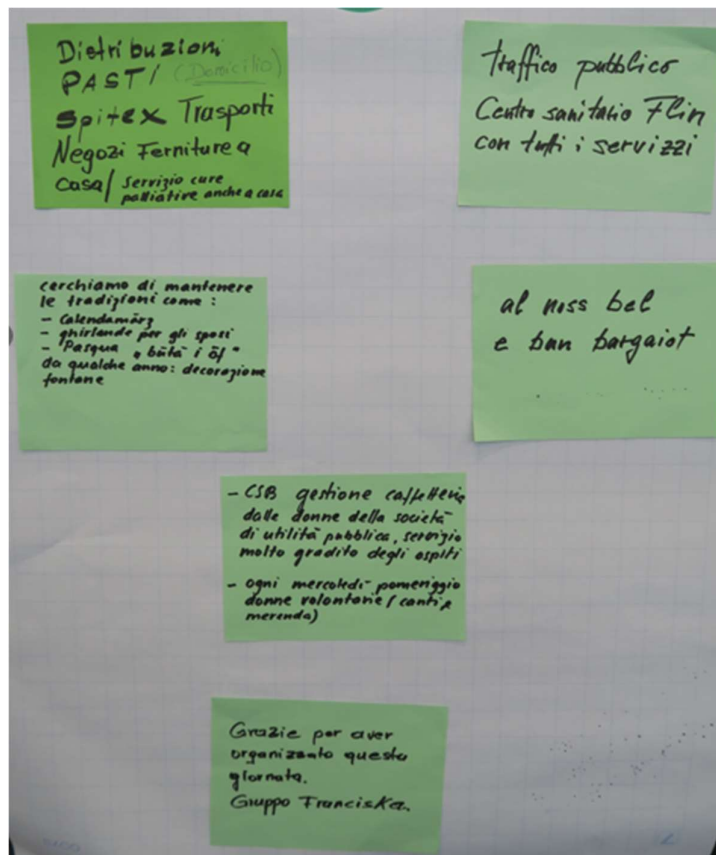 Distribuzioni
PASTI (Domicilio)
Spitex Trasporti
Negozi Ferniture a
casa/ servizio cure
palliative anche a casa
traffico pubblico
Centro sanitario Flin
con tutti i servizzi
cerchiamo di mantenere
le tradizioni come :
- Calendamärz
- ghirlande per gli sposi
- Pasqua „bütä i öf“
da qualche anno: decorazione
fontane
al noss bel
e ban bargaiot
- CSB gestione caffetteria
dalle donne della società
di utilità pubblica, servizio
molto gradito degli ospiti
- ogni mercoledì pomeriggio
donne volontarie / canti e
merenda)
Grazie per aver
organizzato questa
giornata.
Gruppo Franciska.